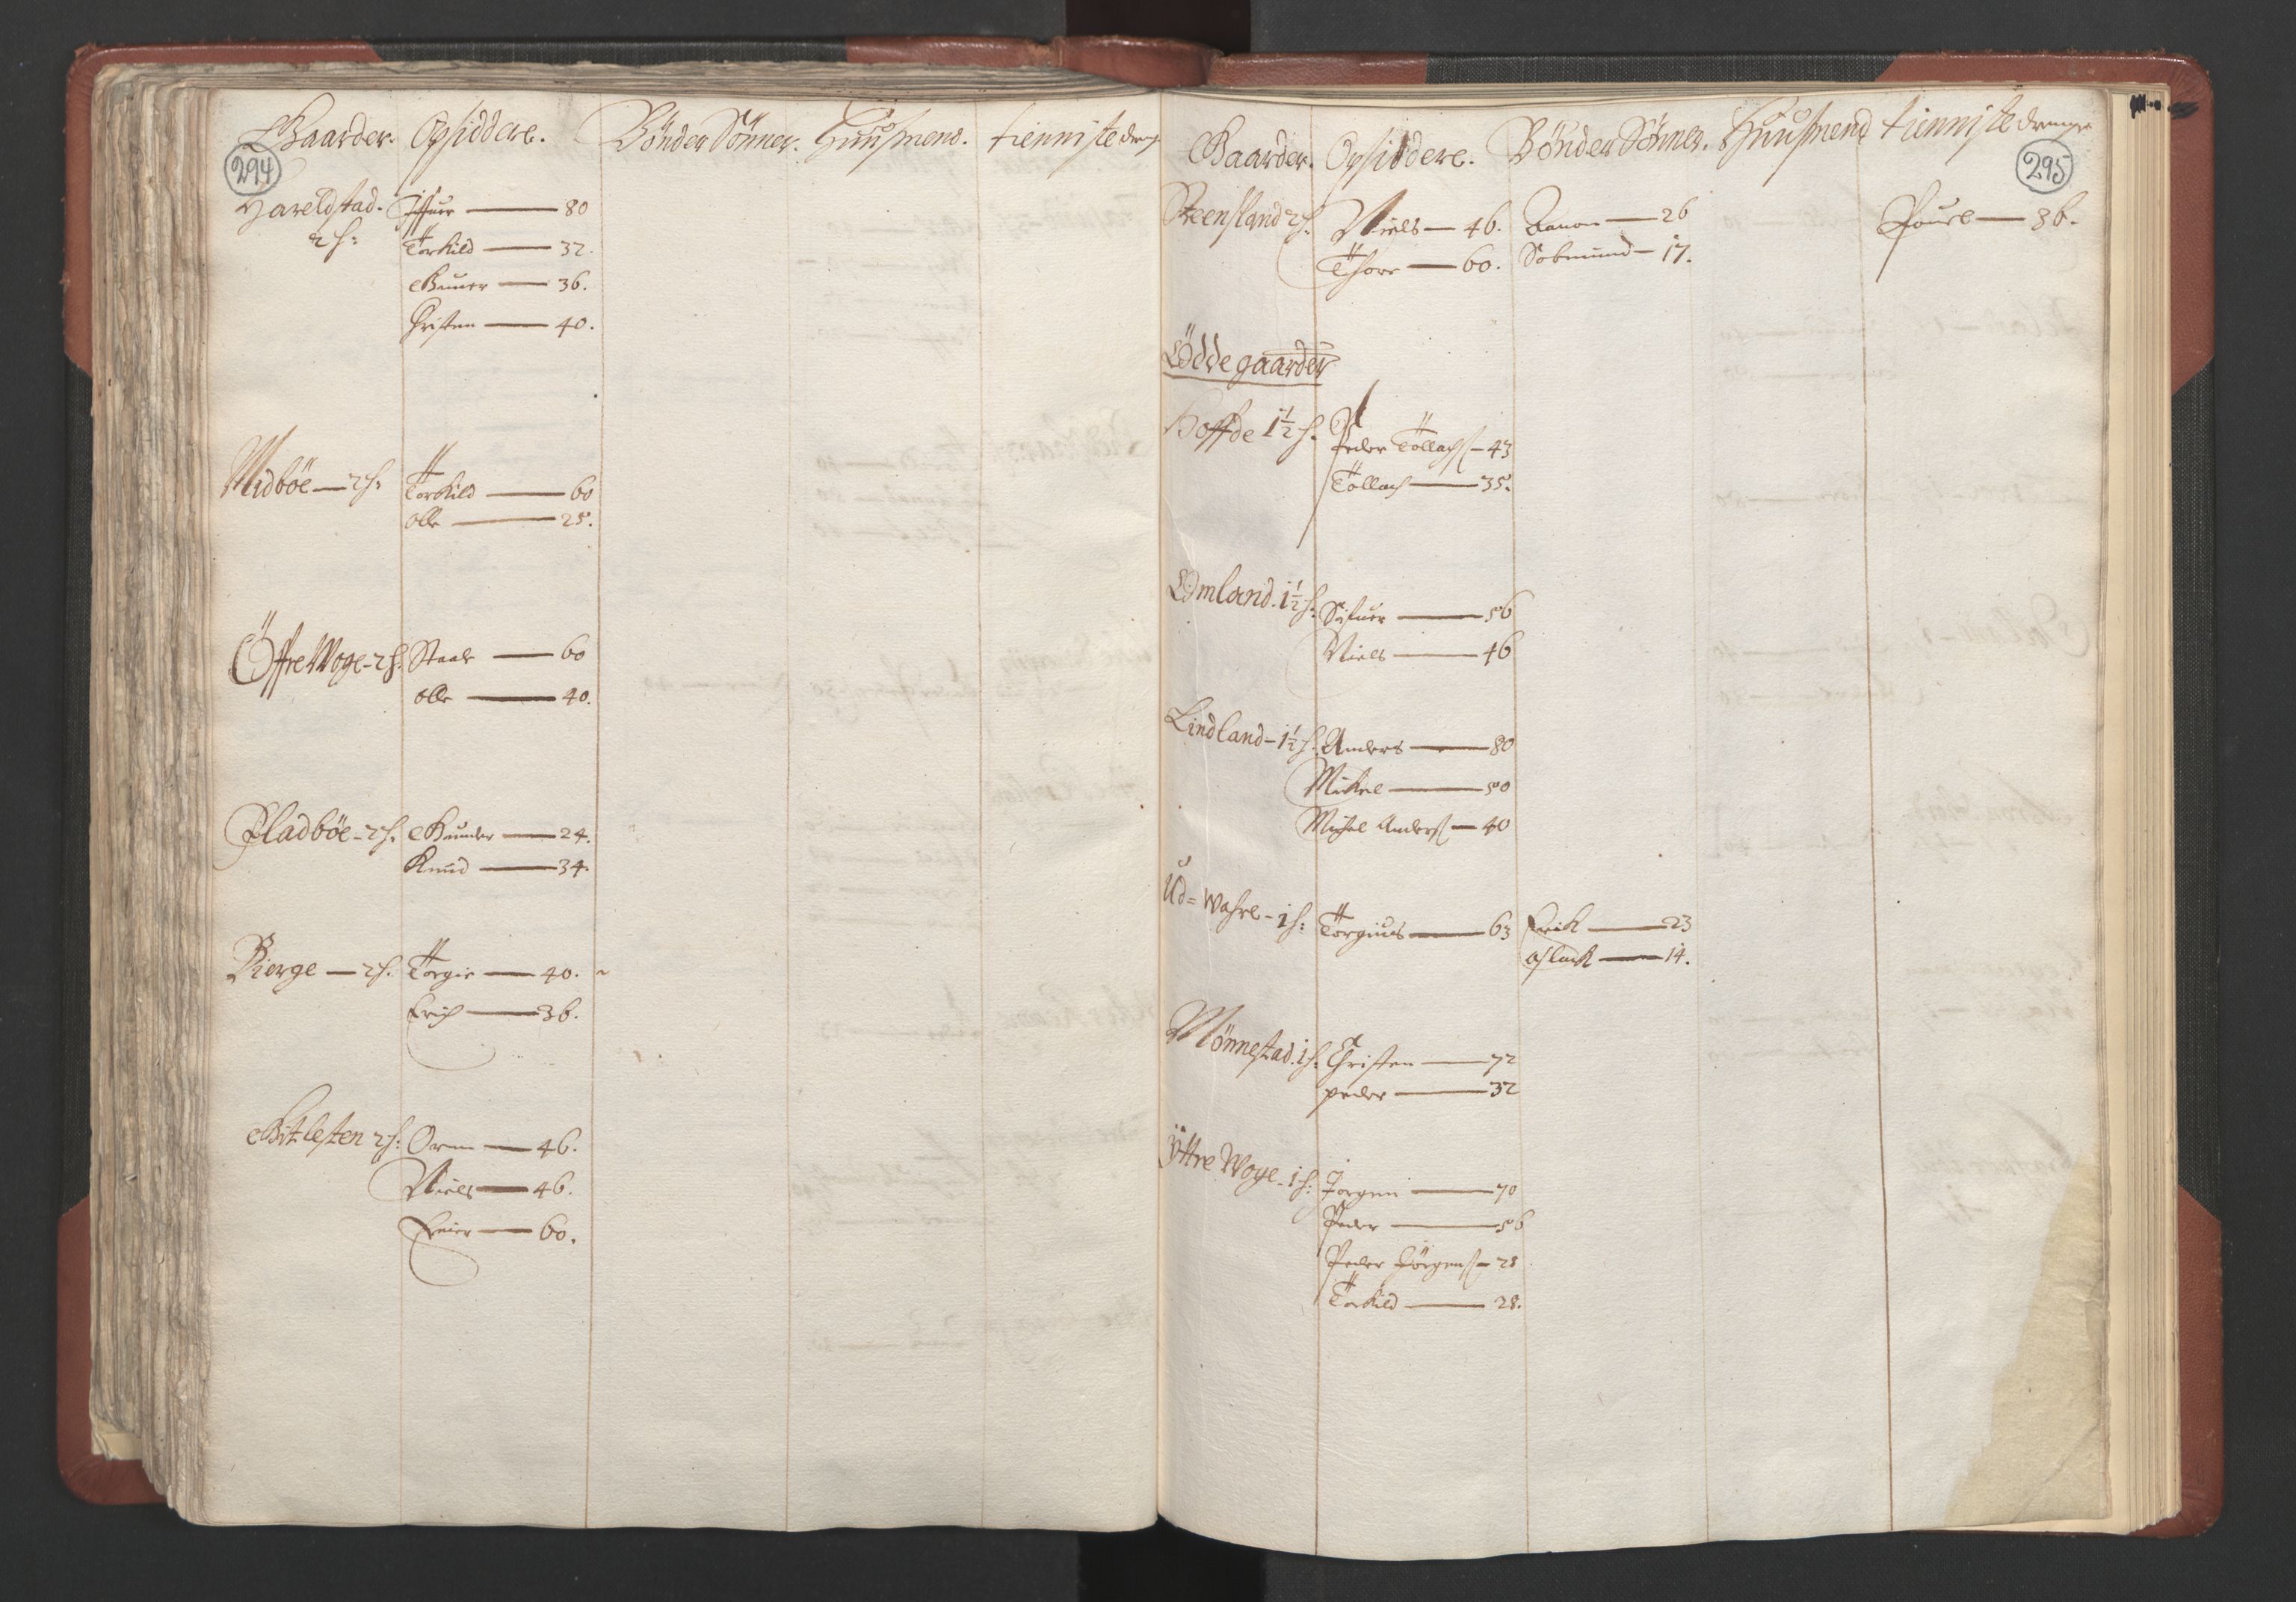 Gaarder. Opsiddere. Bönder Sönner. Huusmend. tienniste dreng
294
Hareldstad. Iffuer — 80
2 h: Torkild — 32.
Gunner — 36.
Christen — 40.
Midböe — 2 h: Torkild — 60
Olle — 25.
Öffre Woge - 2 h. Staale — 60
Olle — 40.
Pladböe - 2 h. Gunder — 24.
Knud — 34.
Bierge — 2 h. Torgie — 40.
Erich — 36.
Gitlesten 2 h: Orm — 46.
Niels — 46.
Freier — 60.
Gaarder. Opsiddere. Bönder Sönner. Huusmend tienniste drenge
295
Steensland 2 h. Niels — 46. Aanon — 26 Pouel — 36.
Thore — 60. Sebmund — 17.
Lödde gaarder
Hoffde 1½ h. Peder Tollachs — 43
Tollach — 35.
Lömland. 1½ h: Sifuer — 56
Niels — 46
Lindland - 1½ h. Anders — 80
Mickel — 50
Michel Anders — 40
Ud = Wahre - 1 h: Torgius — 63 Erik — 23
Aslack — 14.
Mönnestad. 1 h: Christen — 72
peder — 32
Ÿttre Woge - 1 h: Jörgen — 70
Peder — 56
Peder Jörgens — 28
Torkild — 28.